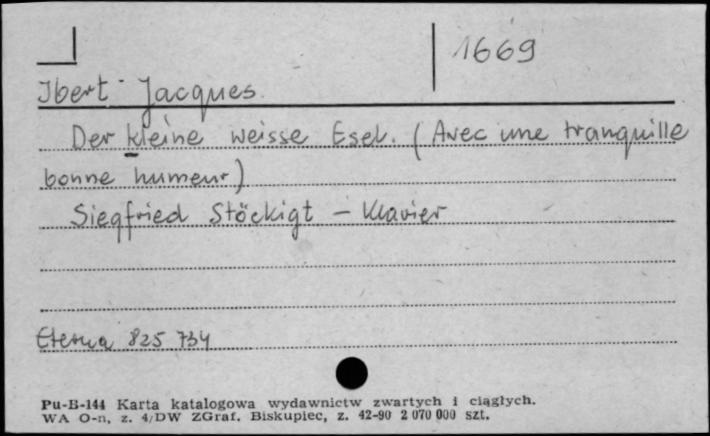 1669
Ibert Jacques
Der kleine weisse Esel. (Avec une tranquille
bonne humeur)
Siegfried Stöckigt - Klavier
Eterna 825 734
Pu-B-144 Karta katalogowa wydawnictw zwartych i ciągłych.
WA O-n, z. 4/DW ZGraf. Biskupiec, z. 42-90 2 070 000 szt.